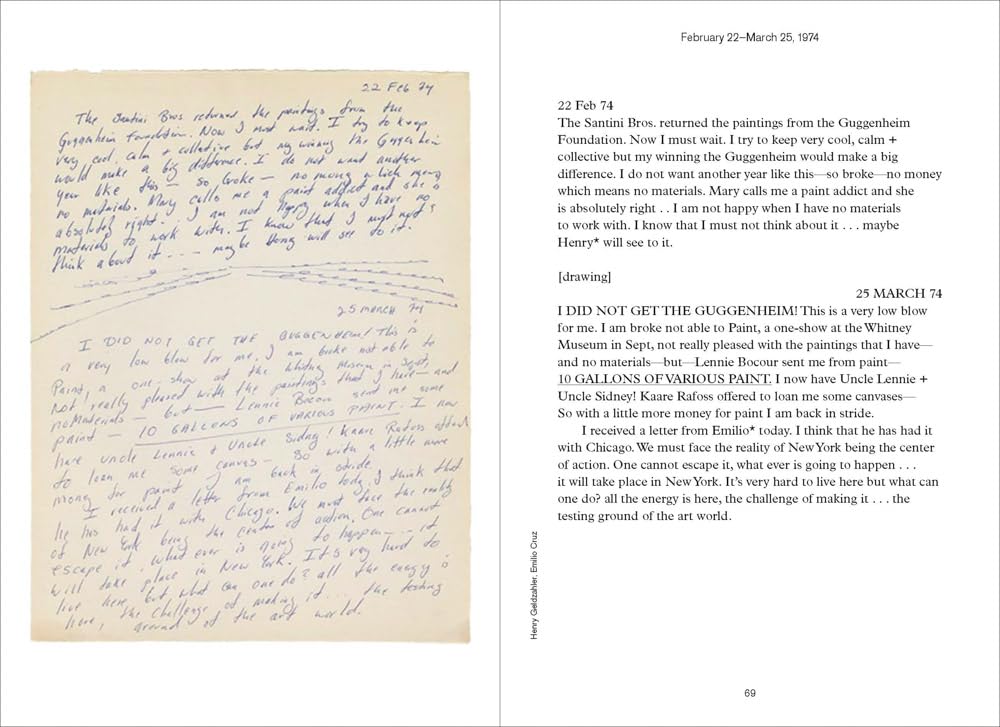 22 Feb 74
The Santini Bros returned the paintings from the
Guggenheim Foundation. Now I must wait. I try to keep
very cool, calm + collective but my winning the Guggenheim
would make a big difference. I do not want another
year like this — so broke — no money which means
no materials. Mary calls me a paint addict and she is
absolutely right . . I am not happy when I have no
materials to work with. I know that I must not
think about it . . . maybe Henry will see to it.
25 march 74
I DID NOT GET THE GUGGENHEIM! This is
a very low blow for me. I am broke not able to
Paint, a one-show at the Whitney Museum in Sept,
Not really pleased with the paintings that I have — and
no Materials — but — Lennie Bocour sent me some
paint — 10 GALLONS OF VARIOUS PAINT. I now
have uncle Lennie + Uncle Sidney! Kaare Rafoss offered
to loan me some canvas — So with a little more
money for paint I am back in stride.
I received a letter from Emilio today. I think that
he has had it with Chicago. We must face the reality
of New York being the center of action. One cannot
escape it, what ever is going to happen . . . it
will take place in New York. It's very hard to
live here but what can one do? all the energy is
here, the challenge of making it . . . the testing
ground of the art world.
February 22–March 25, 1974
22 Feb 74
The Santini Bros. returned the paintings from the Guggenheim
Foundation. Now I must wait. I try to keep very cool, calm +
collective but my winning the Guggenheim would make a big
difference. I do not want another year like this—so broke—no money
which means no materials. Mary calls me a paint addict and she
is absolutely right . . I am not happy when I have no materials
to work with. I know that I must not think about it . . . maybe
Henry* will see to it.
[drawing]
25 MARCH 74
I DID NOT GET THE GUGGENHEIM! This is a very low blow
for me. I am broke not able to Paint, a one-show at the Whitney
Museum in Sept, not really pleased with the paintings that I have—
and no materials—but—Lennie Bocour sent me from paint—
10 GALLONS OF VARIOUS PAINT. I now have Uncle Lennie +
Uncle Sidney! Kaare Rafoss offered to loan me some canvases—
So with a little more money for paint I am back in stride.
I received a letter from Emilio* today. I think that he has had it
with Chicago. We must face the reality of New York being the center
of action. One cannot escape it, what ever is going to happen . . .
it will take place in New York. It's very hard to live here but what can
one do? all the energy is here, the challenge of making it . . . the
testing ground of the art world.
Henry Geldzahler, Emilio Cruz
69